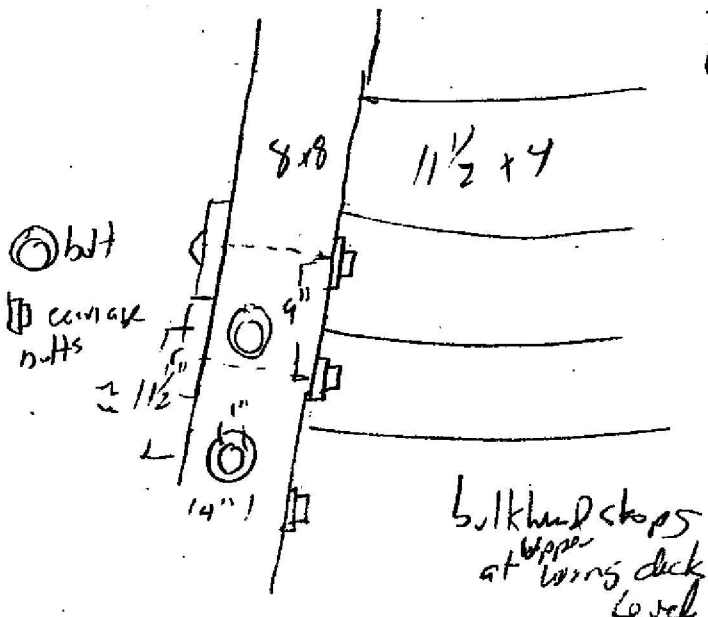 8x8
11 1/2 + 4
bolt
carriage
nutts
9"
≈ 11 1/2"
1"
4"
bulkhead stops
at upper
deck
level